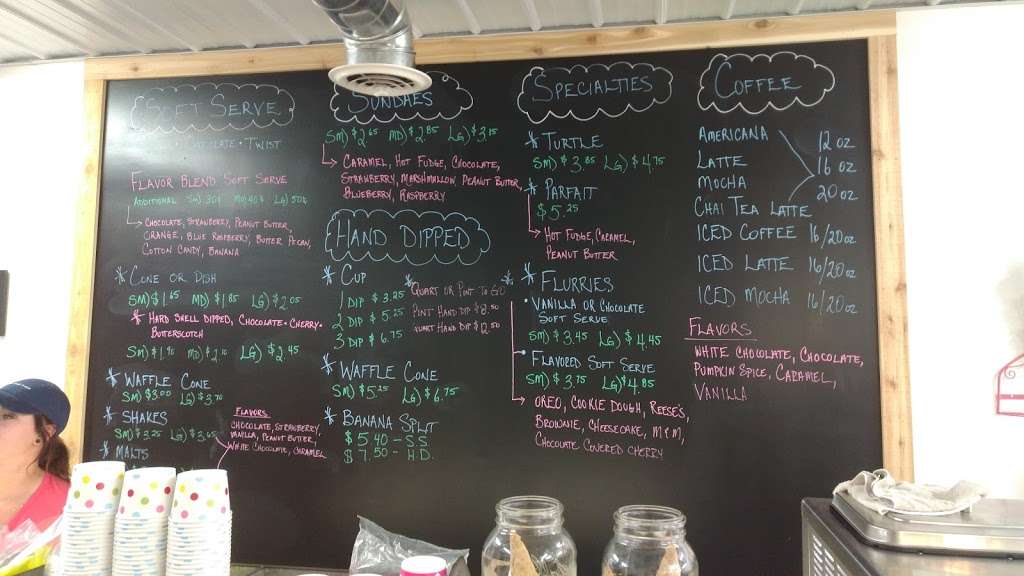 SOFT SERVE
CHOCOLATE • TWIST
FLAVOR BLEND SOFT SERVE
ADDITIONAL SM) 30¢ MD) 40¢ LG) 50¢
CHOCOLATE, STRAWBERRY, PEANUT BUTTER,
ORANGE, BLUE RASPBERRY, BUTTER PECAN,
COTTON CANDY, BANANA
* CONE OR DISH
SM) $1.65 MD) $1.85 LG) $2.05
* HARD SHELL DIPPED, CHOCOLATE • CHERRY •
BUTTERSCOTCH
SM) $1.90 MD) $2.10 LG) $2.45
* WAFFLE CONE
SM) $3.00 LG) $3.70
* SHAKES
SM) $3.25 LG) $3.65
* MALTS
FLAVORS
CHOCOLATE, STRAWBERRY,
VANILLA, PEANUT BUTTER,
WHITE CHOCOLATE, CARAMEL
SUNDAES
SM) $2.65 MD) $2.85 LG) $3.15
CARAMEL, HOT FUDGE, CHOCOLATE,
STRAWBERRY, MARSHMALLOW, PEANUT BUTTER,
BLUEBERRY, RASPBERRY
HAND DIPPED
* CUP
1 DIP $3.25
2 DIP $5.25
3 DIP $6.75
* QUART OR PINT TO GO *
PINT HAND DIP $8.50
QUART HAND DIP $12.50
* WAFFLE CONE
SM) $5.25 LG) $6.75
* BANANA SPLIT
$5.40 - S.S.
$7.50 - H.D.
SPECIALTIES
* TURTLE
SM) $3.85 LG) $4.75
* PARFAIT
$5.25
HOT FUDGE, CARAMEL,
PEANUT BUTTER
* FLURRIES
• VANILLA OR CHOCOLATE
SOFT SERVE
SM) $3.45 LG) $4.45
• FLAVORED SOFT SERVE
SM) $3.75 LG) $4.85
OREO, COOKIE DOUGH, REESE'S,
BROWNIE, CHEESECAKE, M&M,
CHOCOLATE COVERED CHERRY
COFFEE
AMERICANA 12 OZ
LATTE 16 OZ
MOCHA 20 OZ
CHAI TEA LATTE
ICED COFFEE 16/20 OZ
ICED LATTE 16/20 OZ
ICED MOCHA 16/20 OZ
FLAVORS
WHITE CHOCOLATE, CHOCOLATE,
PUMPKIN SPICE, CARAMEL,
VANILLA